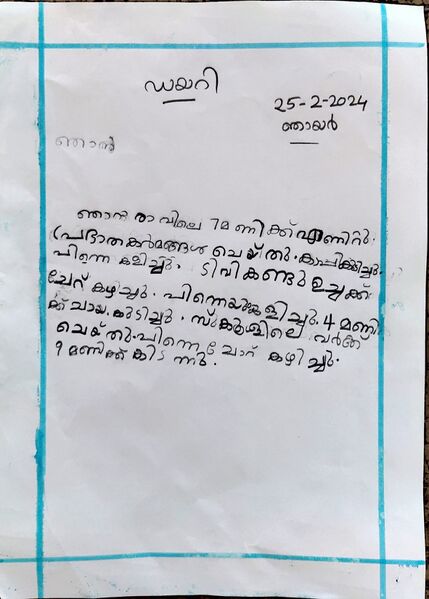 ഡയറി
25-2-2024
ഞായർ
ഞാൻ
ഞാൻ രാവിലെ 7മണിക്ക് എണിറ്റു.
പ്രഭാതകർമങ്ങൾ ചെയ്തു. കാപ്പികുടിച്ചു.
പിന്നെ കളിച്ചു. ടിവികണ്ടു ഉച്ചക്ക്
ചേറ് കഴിച്ചു. പിന്നെയും കളിച്ചു. 4 മണി
ക്ക് ചായ. കുടിച്ചു. സ്കൂളിലെ വർക്ക്
ചെയ്തു. പിന്നെ ചോറ് കഴിച്ചു.
9 മണിക്ക് കിടന്നു.